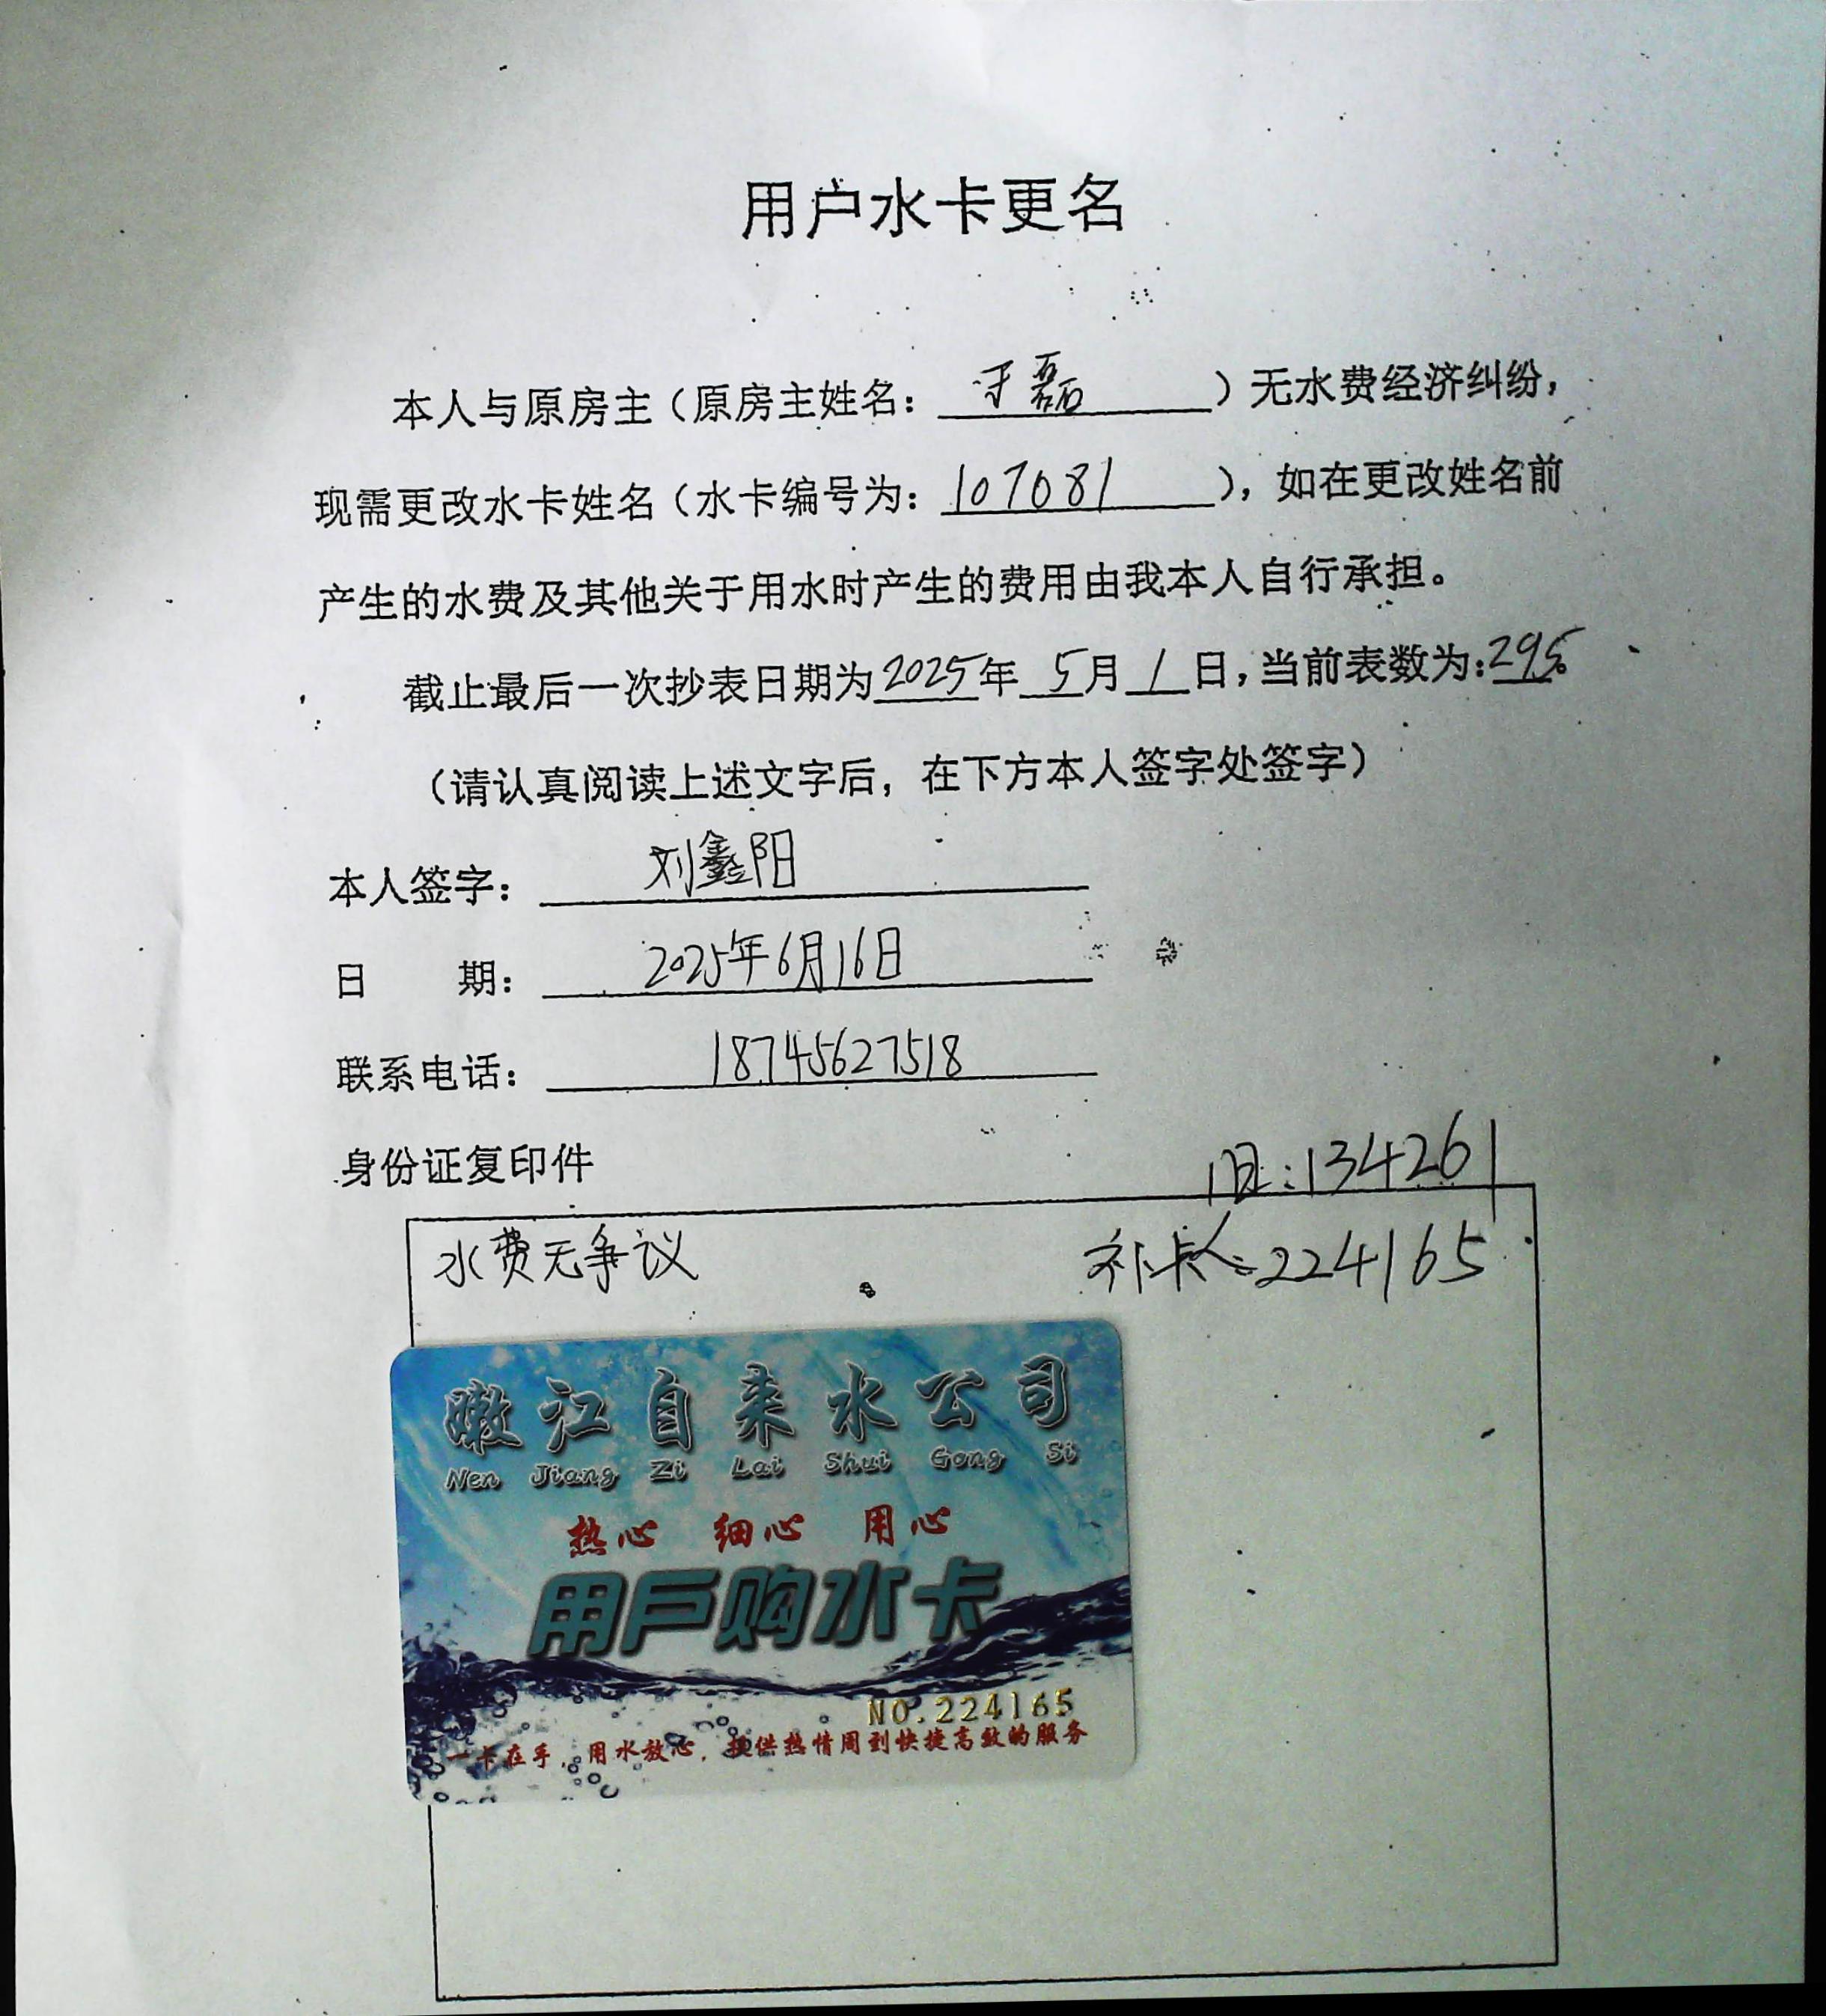 用户水卡更名
本人与原房主（原房主姓名：于磊）无水费经济纠纷，
现需更改水卡姓名（水卡编号为：107081），如在更改姓名前
产生的水费及其他关于用水时产生的费用由我本人自行承担。
截止最后一次抄表日期为2025年5月1日，当前表数为:295。
（请认真阅读上述文字后，在下方本人签字处签字）
本人签字：刘鑫阳
日期：2025年6月16日
联系电话：18745627518
身份证复印件
旧:134261
水费无争议
补卡:224165
嫩江自来水公司
Nen Jiang Zi Lai Shui Gong Si
热心 细心 用心
用户购水卡
NO.224165
一卡在手，用水放心，提供热情周到快捷高效的服务